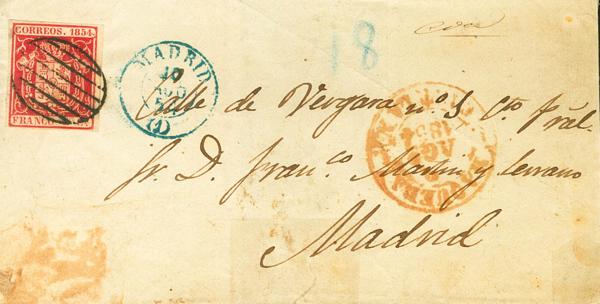 CORREOS. 1854.
FRANCO
MADRID
AGO
(1)
18
Calle de Vergara nº 5 Cto Pral.
Sr. D. Franco Martin y Serrano
Madrid
AGO
1854